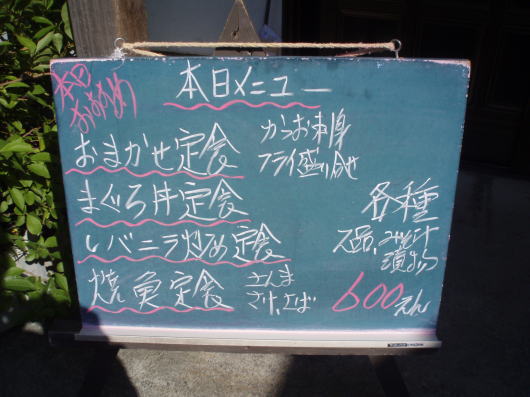 本日
おすすめ
本日メニュー
おまかせ定食
かつお刺身
フライ盛り合せ
まぐろ丼定食
レバニラ炒め定食
焼魚定食
さんま
さけ、さば
各種
みそ汁
漬物
600えん